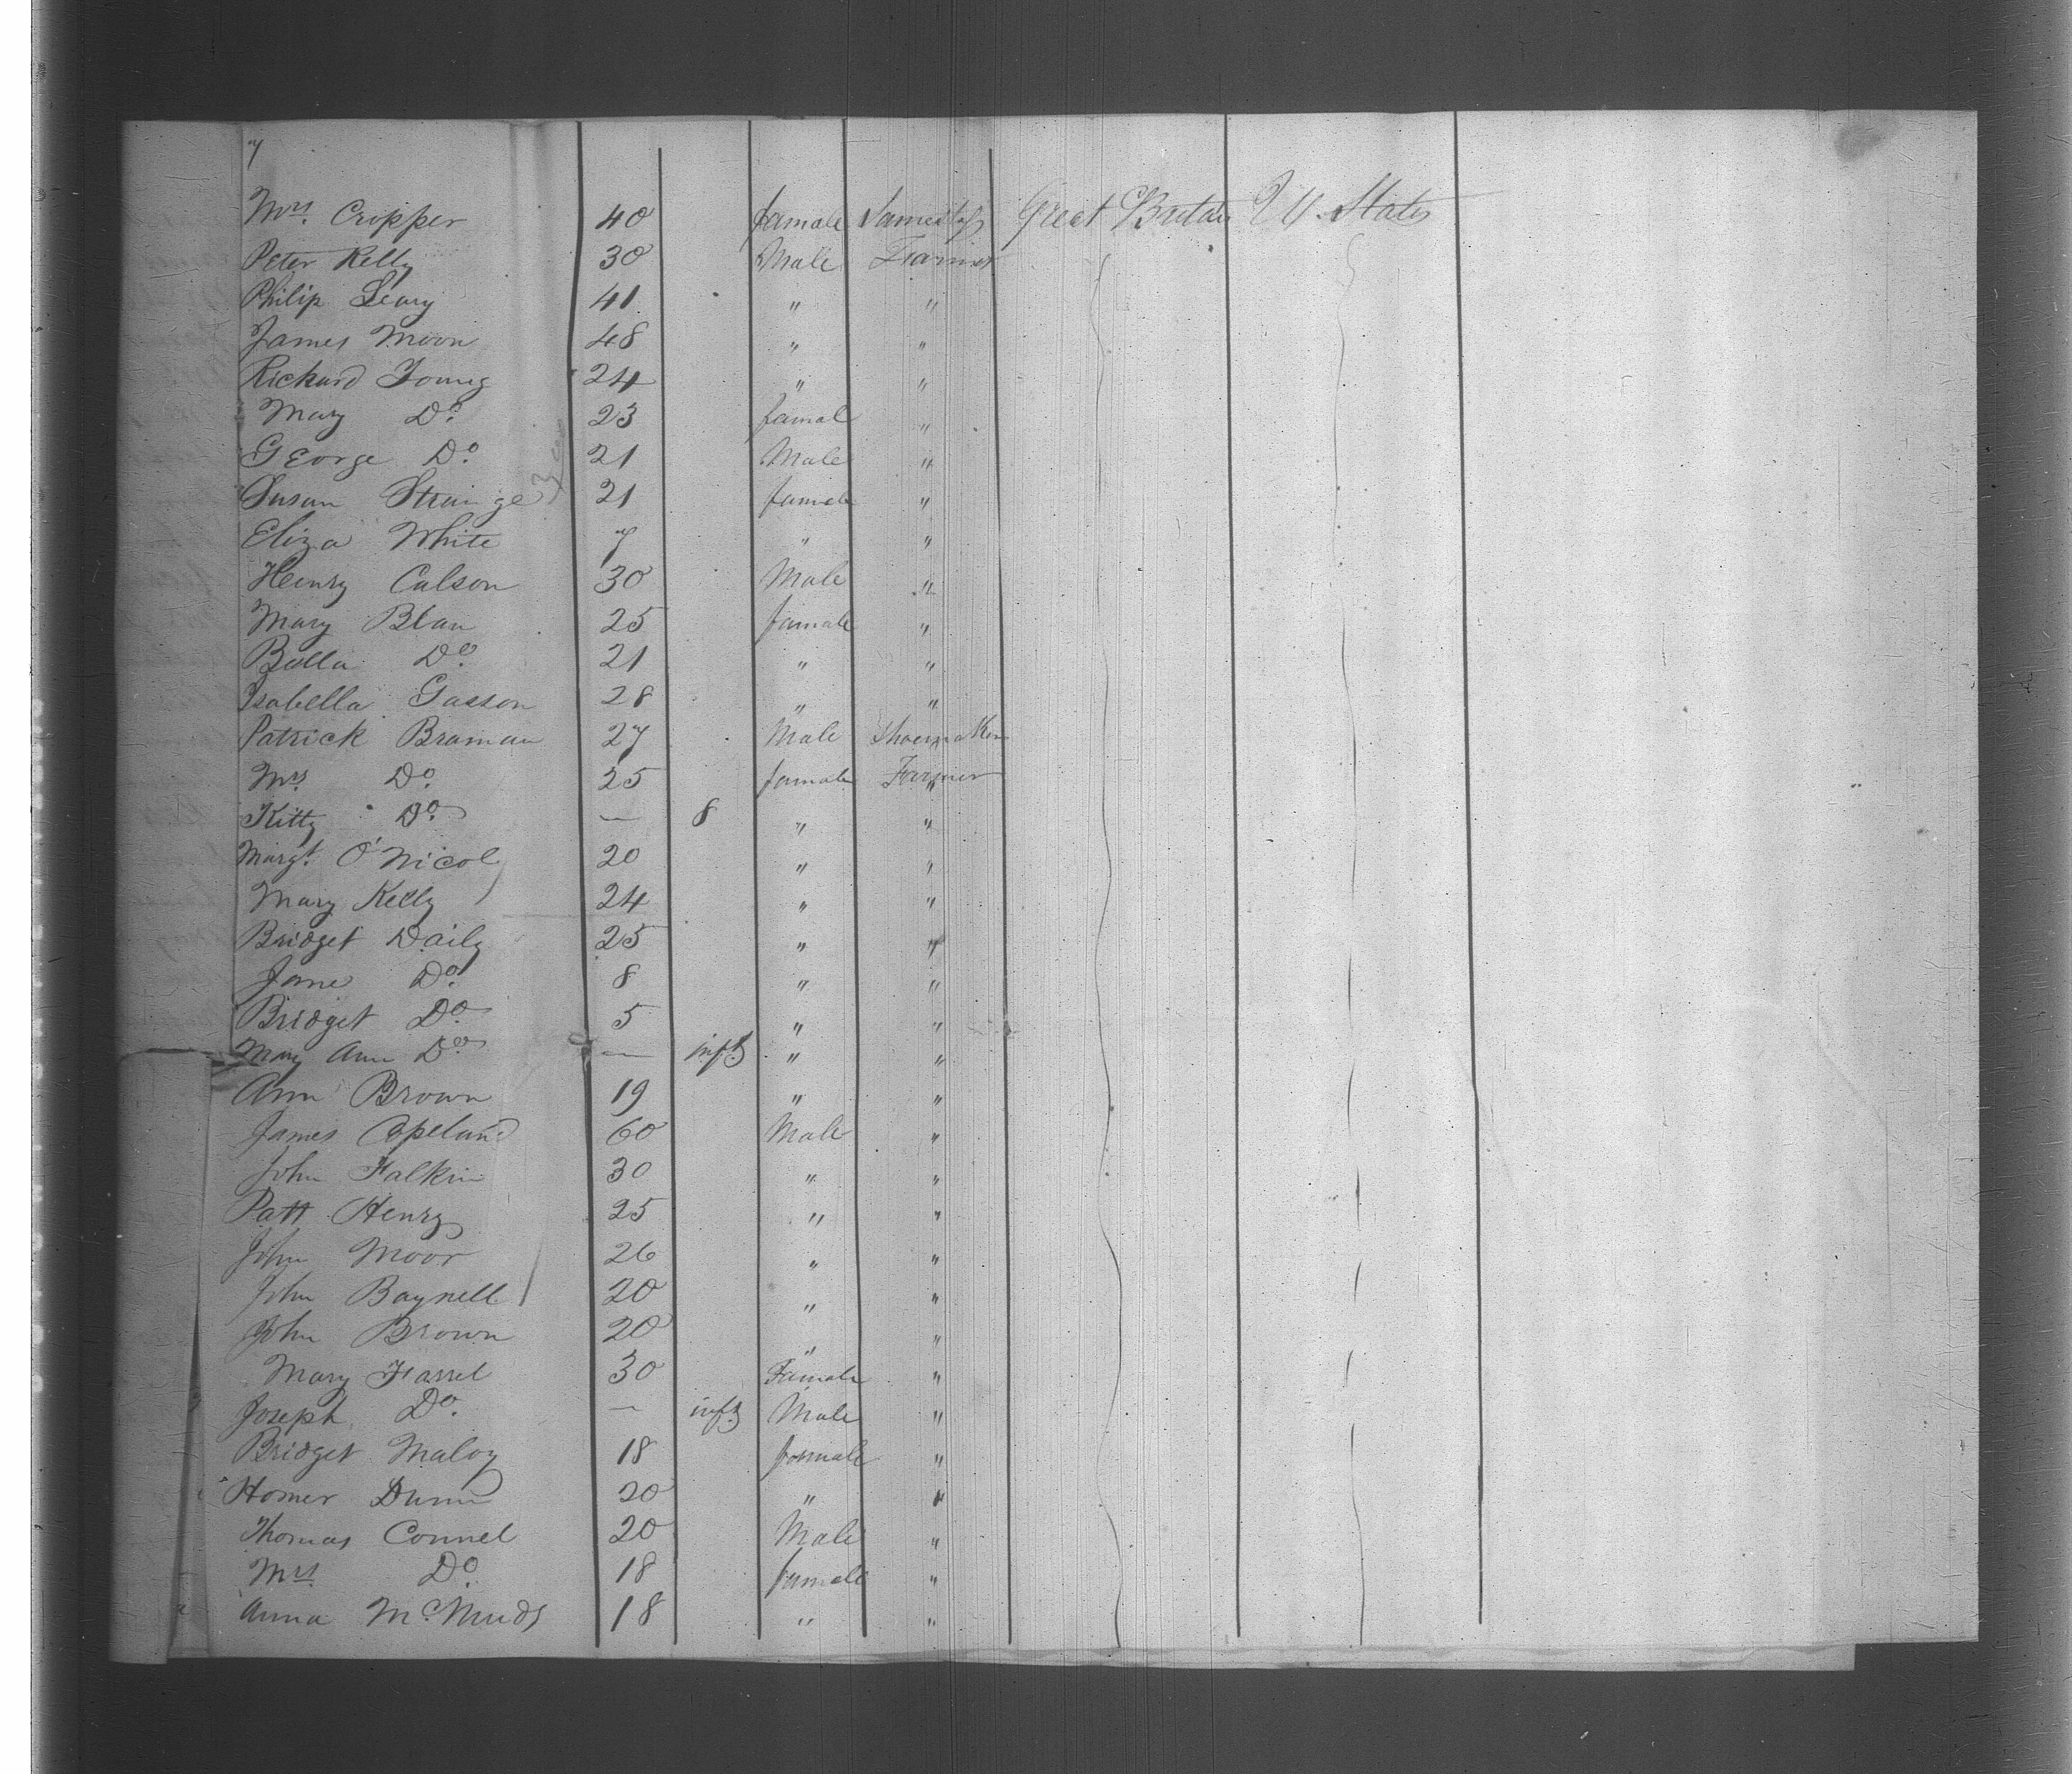 7
Mrs. Cropper 40 female Great Britain U. States
Peter Kelly 30 Male Farmer
Philip Leary 41 " "
James Moon 48 " "
Richard Young 24 " "
Mary Do. 23 femal "
George Do. 21 Male "
Susan Strainge 21 female "
Eliza White 7 " "
Henry Calson 30 Male "
Mary Blan 25 female "
Bella Do. 21 " "
Isabella Gasson 28 " "
Patrick Braman 27 Male Shoemaker
Mrs Do. 25 female Farmer
Kitty Do. — 8 " "
Margt. O'Nicol 20 " "
Mary Kelly 24 " "
Bridget Daily 25 " "
Jane Do. 8 " "
Bridget Do. 5 " "
Mary Ann Do. — inft " "
Ann Brown 19 " "
James Copeland 60 Male "
John Falkin 30 " "
Patt Henry 25 " "
John Moor 26 " "
John Baynell 20 " "
John Brown 20 " "
Mary Farrel 30 Female "
Joseph Do. — inft Male "
Bridget Maloy 18 female "
Homer Dunn 20 " "
Thomas Connel 20 Male "
Mrs. Do. 18 female "
Anna 18 " "